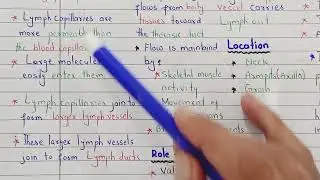 Lymph capillaries are
more permeable than
the blood capillaries
Large molecules
easily enter them
Lymph capillaries join to
form larger lymph vessels
These larger lymph vessels
join to form Lymph ducts
flows from body vessel carries
tissues toward Lymph
the thoracic duct
Flow is maintaind
by:
Skeletal muscle
activity
Movement of
Role
Location
Neck
Armpits (Axilla)
Groin